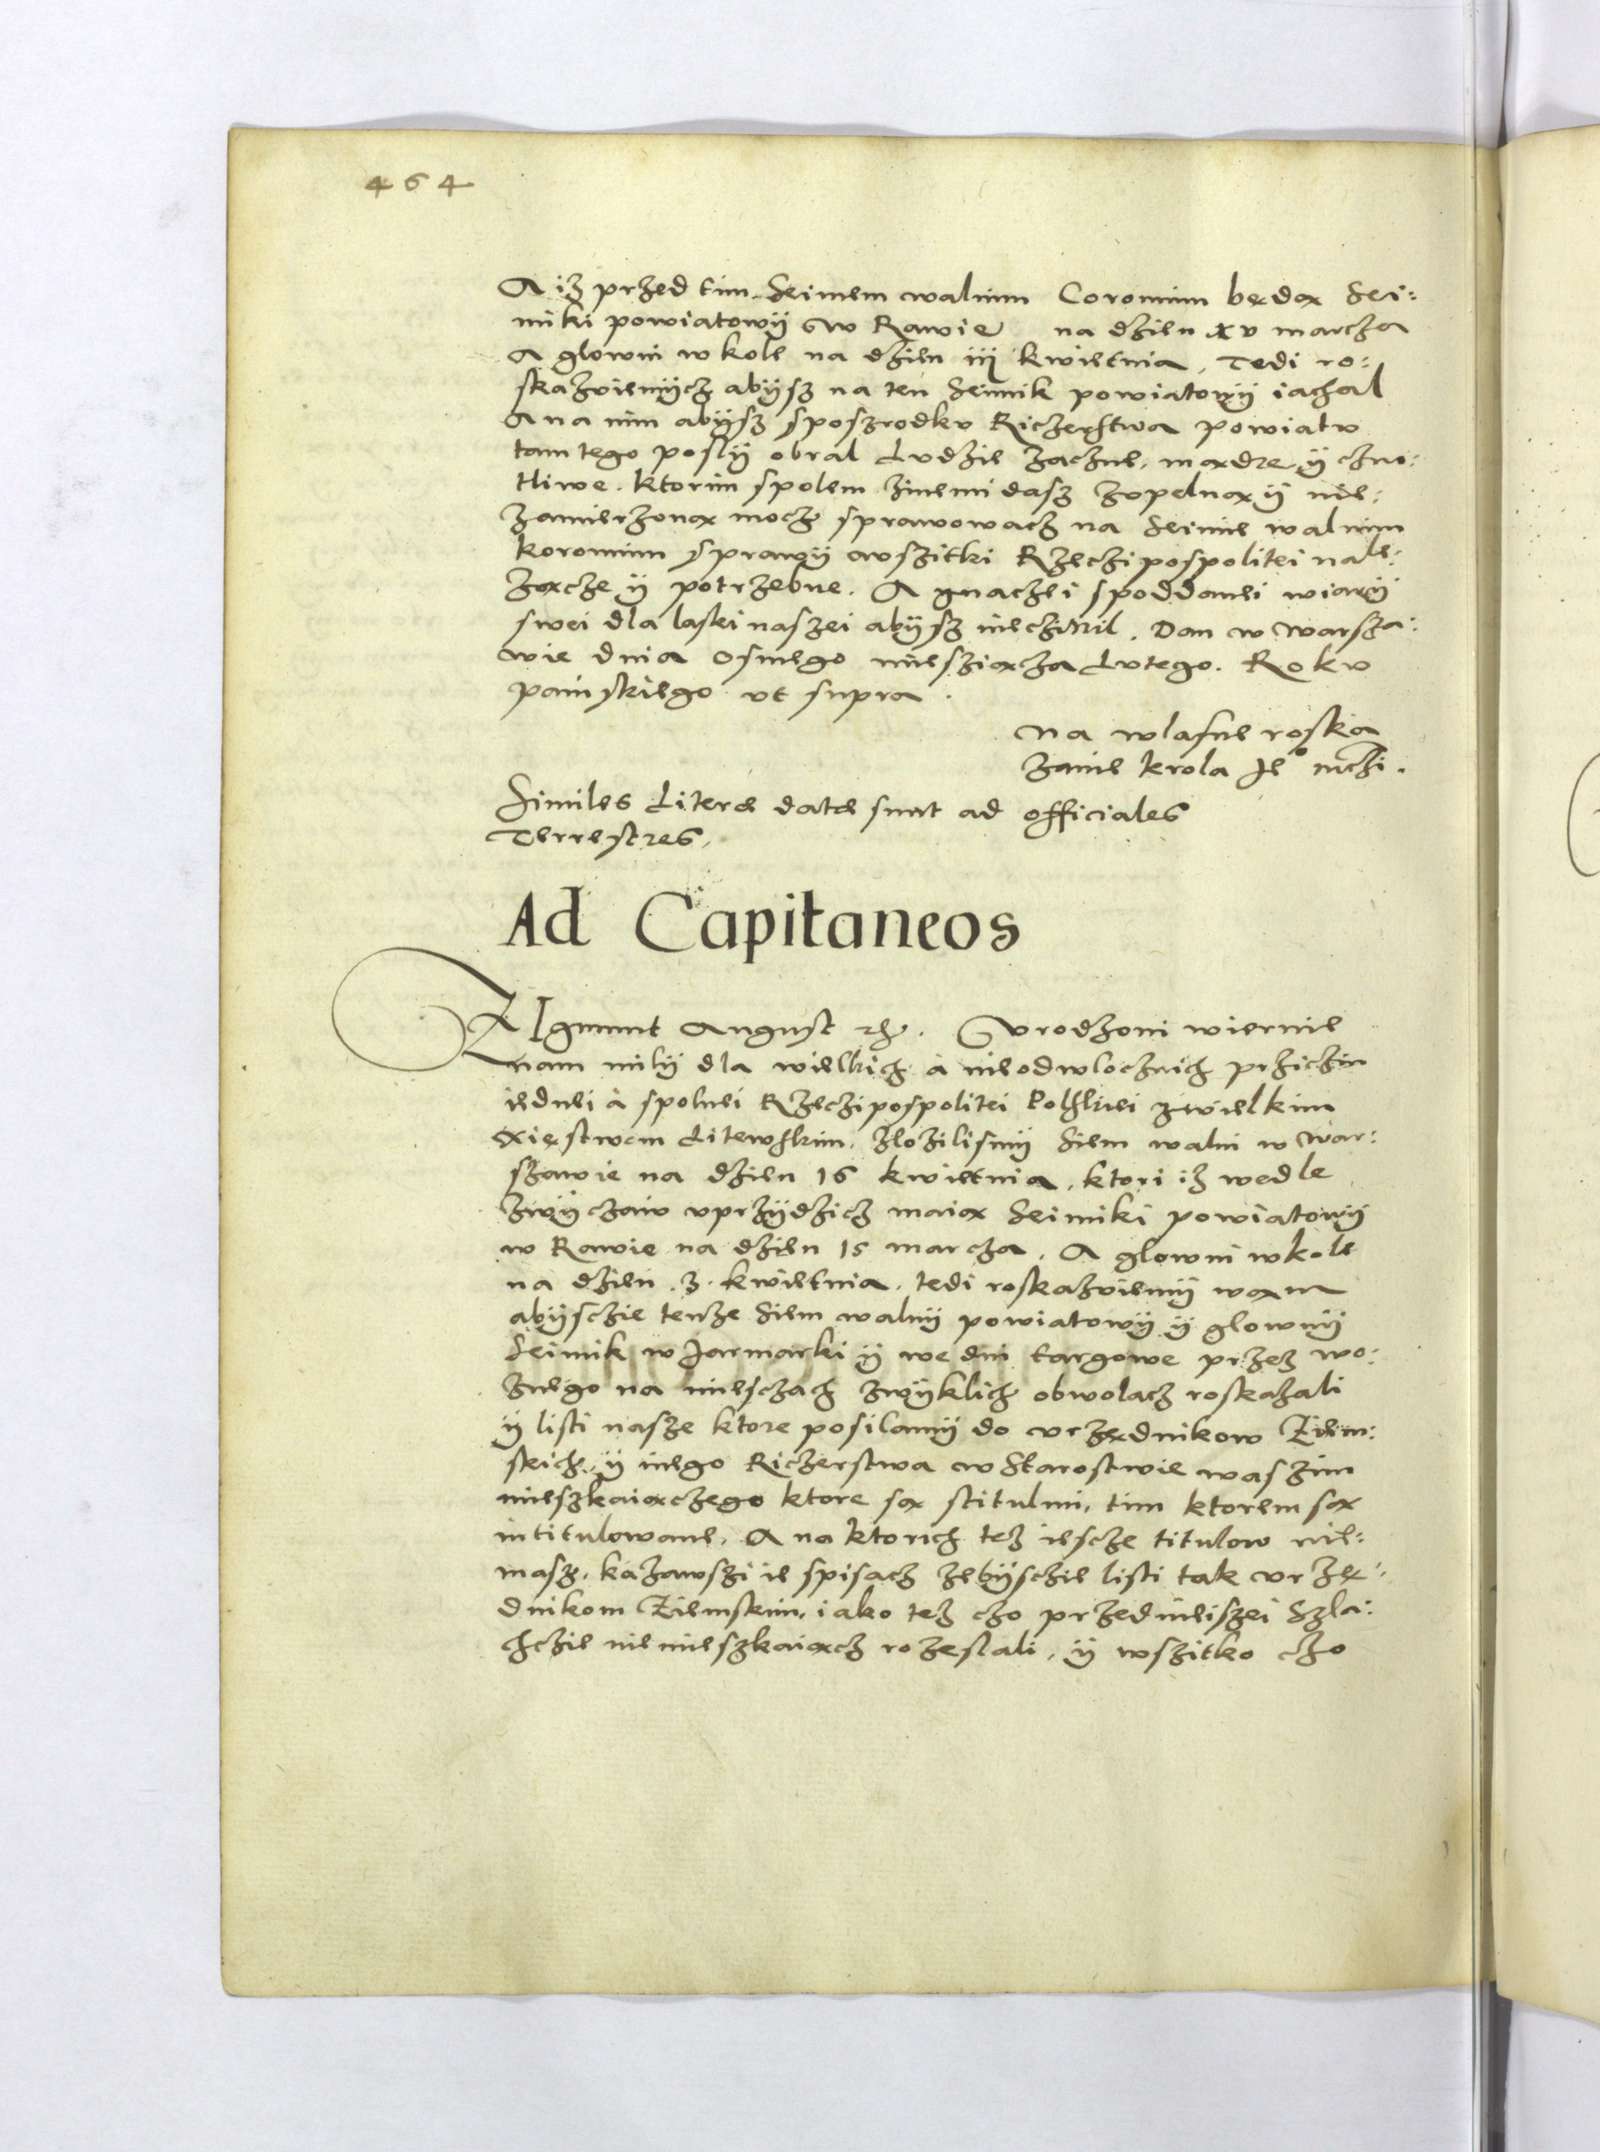 464
A iz przed tim Seimem walnim Coronnim będą Sei:
miki powiatowÿ w Rawie na dzień xv marcza
A glowni w kole na dzień iij kwietnia, Tedi ro:
skazuiemÿcz abÿsz na ten Seimik powiatowÿ iachal
A na nim abÿsz sposzrodku Riczerstwa powiatu
tamtego poslÿ obral Ludzie zaczne, mądre ÿ czno:
tliwe. ktorim spolem zinemi dasz zupelną ÿ nie:
zamierzoną mocz sprawowacz na Seimie walnim
koronnim sprawÿ wszitki Rzeczipospolitei nale:
żącze ÿ potrzebne. A ynaczei spoddanei wiarÿ
swei dla laski naszei abÿsz nieczinil. Dan w Warsza:
wie dnia osmego miesziącza Lutego. Roku
painskiego ut supra.
na wlasne roska
zanie krola Jeº mczi.
Similes Literæ datæ sunt ad officiales
Terrestres.
Ad Capitaneos
ZIgmunt August etc. Vrodzoni wiernie
nam milÿ dla wielkich à nieodwlocznich prziczin
iednei à spolnei Rzeczipospolitei Polskiei zwielkim
xięstwem Litewskim, zlozilismÿ Siem walni w War:
szawie na dzień 16 kwietnia, ktori iz wedle
zwÿczaiu uprzÿdzicz maią Seimiki powiatowÿ
w Rawie na dzień 15 marcza. A glowni wkole
na dzień 3 kwietnia. tedi roskazuiemÿ wam
abÿsczie tenze Siem walnÿ powiatowÿ ÿ glownÿ
Seimik w Jarmarki ÿ we dni targowe przez wo:
znego na miesczach zwÿklich obwolacz roskazali
ÿ listi nasze ktore posilamÿ do urzędnikow Ziem:
skich, ÿ inego Riczerstwa w Starostwie waszim
mieszkaiączego ktore są stitulmi, tim ktorem są
intitulowane, A na ktorich tez iescze titulow nie:
masz, kázawszi ie spisacz zebÿsczie listi tak urzę:
dnikom Ziemskim, iako tez czo przednieiszei Szla:
chczie niemieszkaiącz rozeslali, ÿ wszitko czo